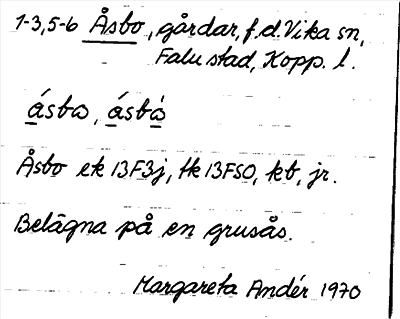 1-3,5-6 Åsbo, gårdar, f.d. Vika sn,
Falu stad, Kopp. l.
ásbω, ásbὠ
Åsbo ek 13F3j, tk 13FSO, kb, jr.
Belägna på en grusås.
Margareta Andér 1970